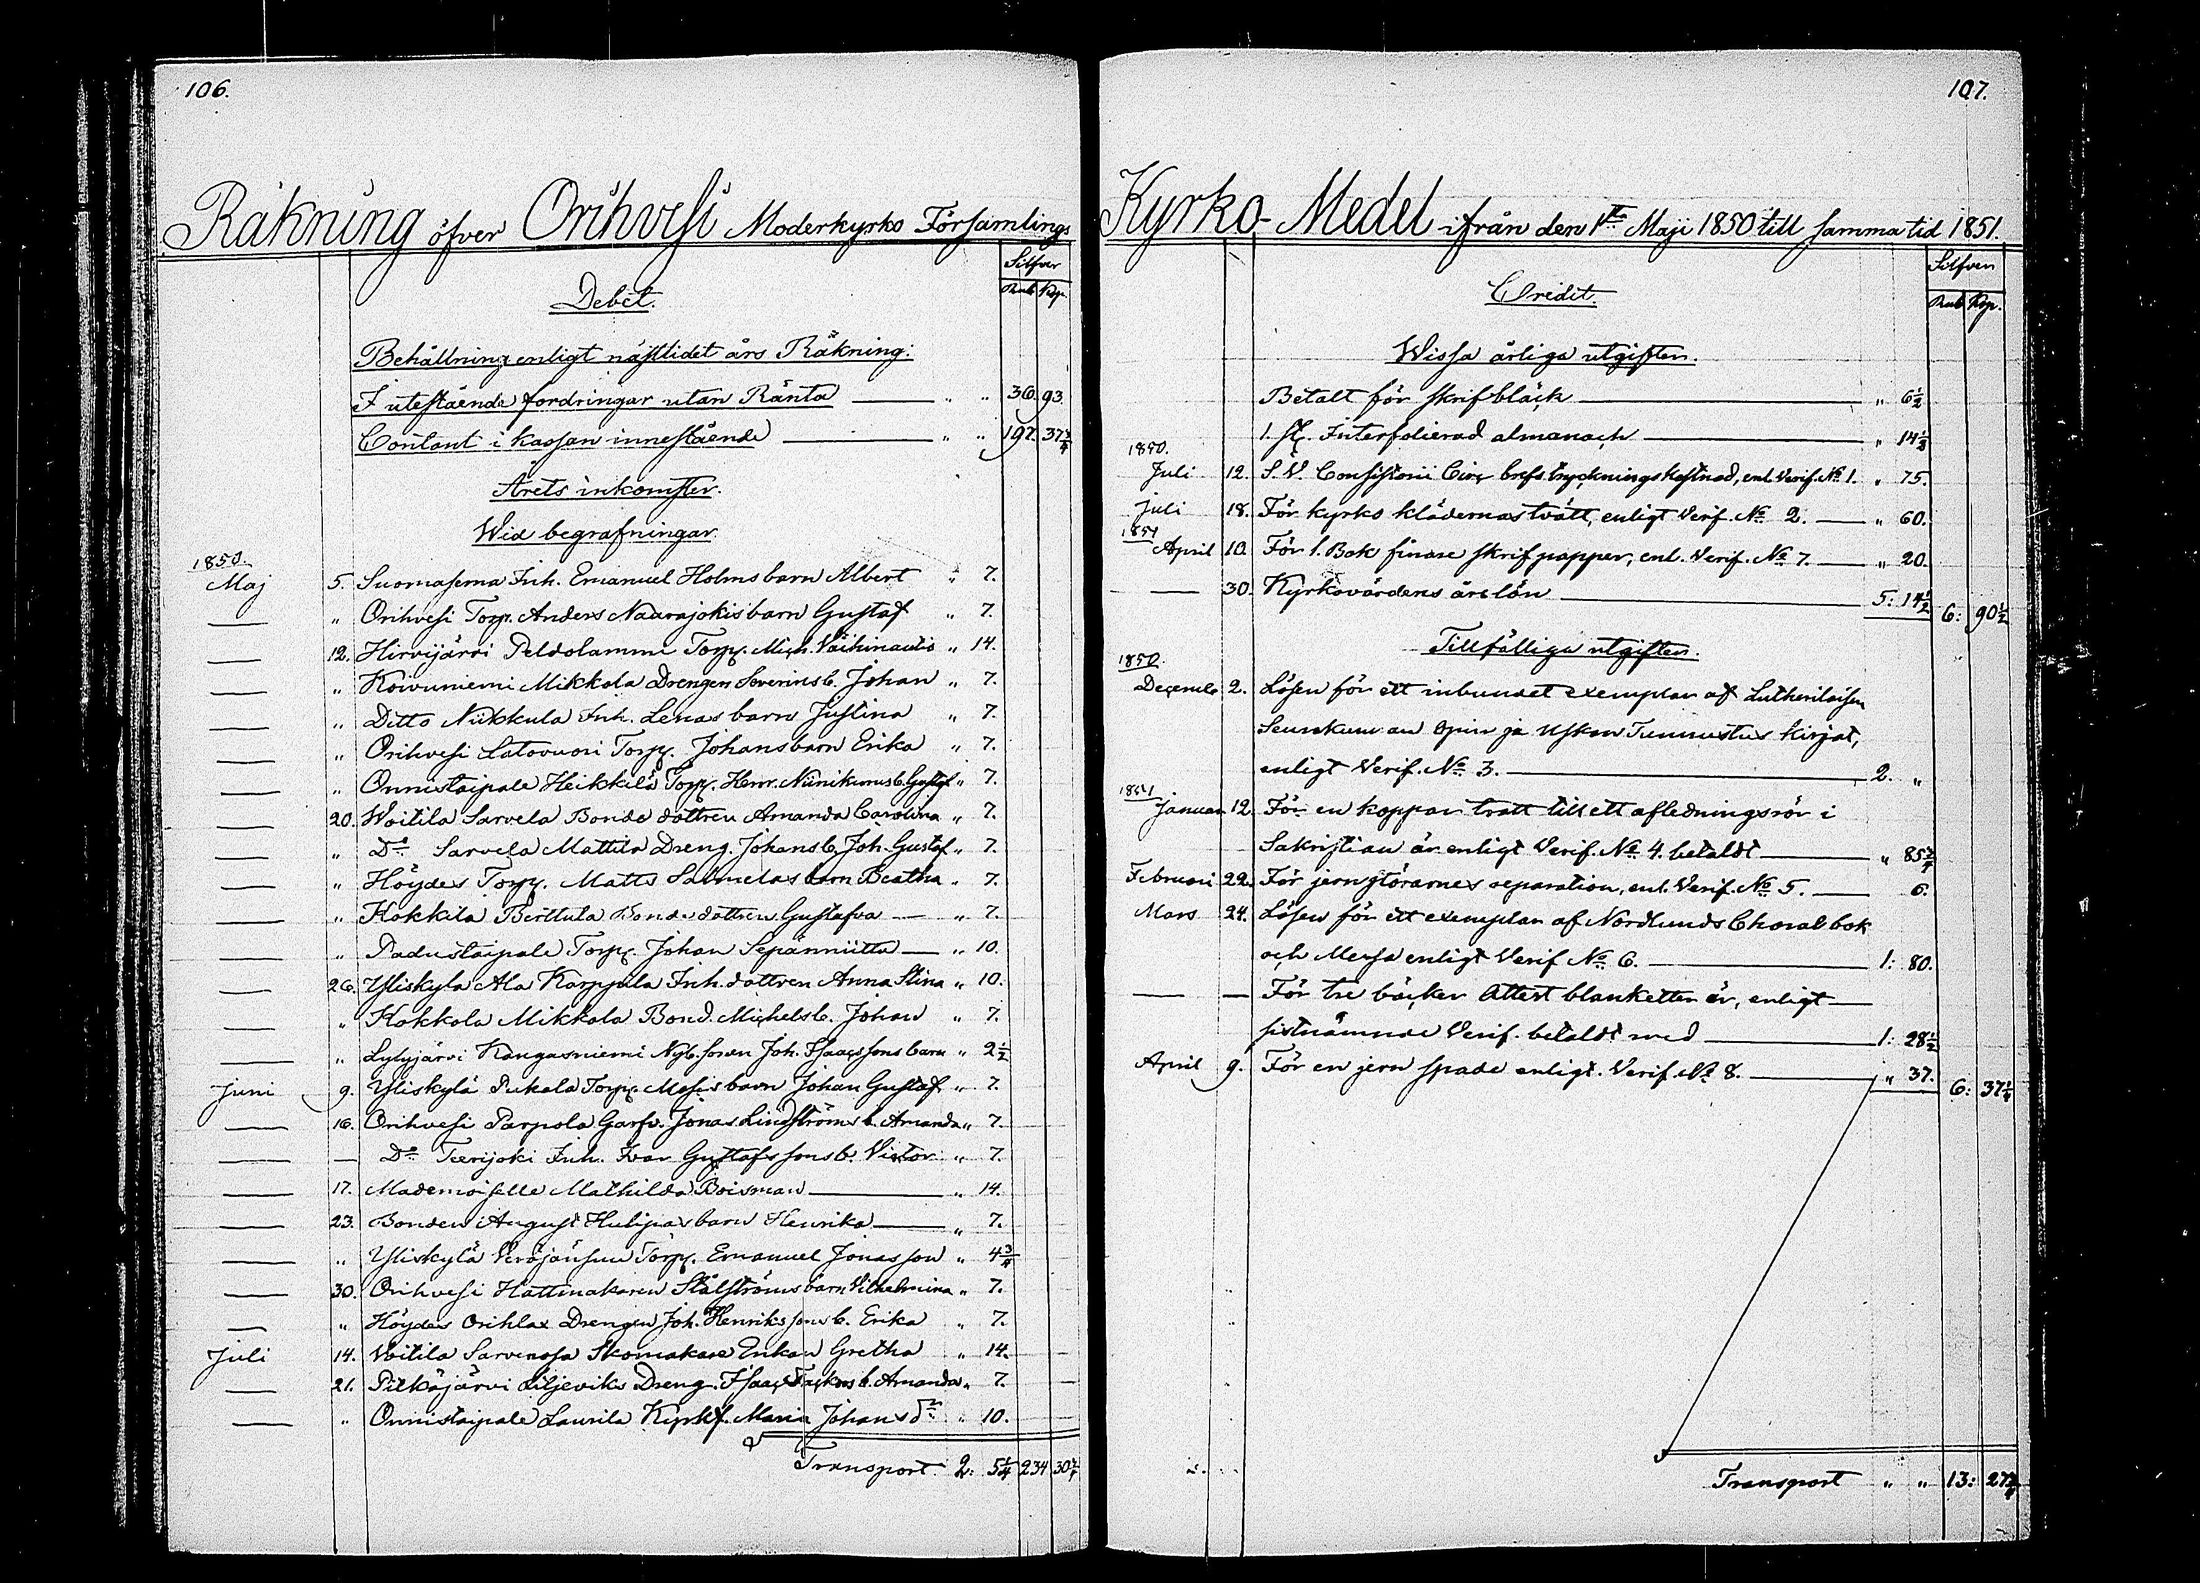 106.
Räkning öfver Orihvesi Moderkyrko Församlings
Silfver
Rub Kop.
Debet.
Behållning enligt nästlidet års Räkning:
I utestående fordringar utan Ränta — " " 36. 93.
Contant i kassan innestående — " " 197. 37 3/4
Årets inkomster.
Wid begrafningar.
1850.
Maj 5. Suomasema Inh. Emanuel Holms barn Albert " 7.
— " Orihvesi Torp. Anders Naarajokis barn Gustaf " 7.
— 12. Hirvijärvi Peldolammi Torp. Mich. Väihinautio " 14.
— " Koivuniemi Mikkola Drengen Severins b. Johan " 7.
— " Ditto Niikkula Inh. Lenas barn Justina " 7.
— " Orihvesi Latovuori Torp. Johans barn Erika " 7.
— " Onnistaipale Heikkilä Torp. Henr. b. Gustaf " 7.
— 20. Woitila Sarvela Bonde dottren Amanda Carolina " 7.
— " Do Sarvela Mattila Dreng. Johans b. Joh. Gustaf " 7.
— " Höydes Torp. Matts Salmelas barn Beatha " 7.
— " Kokkila Berttula Bonde dottren Gustafva — " 7.
— " Padustaipale Torp. Johan Sepänniitty — " 10.
— 26. Yliskylä Ala Karppila Inh. dottren Anna Stina " 10.
— " Kokkola Mikkola Bond. Michels b. Johan " 7.
— " Lylyjärvi Kangasniemi Nyb. sonen Joh. Isaacssons barn " 2 1/2
Juni 9. Yliskylä Pukala Torp. Mosis barn Johan Gustaf " 7.
— 16. Orihvesi Parpola Garfv. Jonas Lindströms b. Amanda " 7.
— — Do Teerijoki Inh. Ivar Gustafssons b. Victor " 7.
— 17. Mademoiselle Mathilda Boisman — " 14.
— 23. Bonden August Hulipas barn Henrika — " 7.
— " Yliskylä Torp. Emanuel Jonasson " 4 3/4
— 30. Orihvesi Hattmakaren Stålströms barn Vilhelmina " 7.
— " Höydes Orihlax Drengen Joh. Henrikssons b. Erika " 7.
Juli 14. Voitila Skomakare Enkan Gretha " 14.
— 21. Pitkäjärvi Liljeviks Dreng. Isaac b. Amanda " 7.
— " Onnistaipale Laurila Maria Johans dr " 10.
Transport 2: 5 1/4 234 30 3/4
107.
Kyrko-Medel ifrån den 1sta Maji 1850 till samma tid 1851.
Silfver
Rub Kop.
Credit.
Wissa årliga utgifter.
Betalt för skrifbläck — " 6 1/2
1. st. Interfolierad almanach — " 14 1/2
1850.
Juli 12. S. V. Consistorii Circ brefs tryckningskostnad, enl. Verif. No 1. " 75.
Juli 18. För kyrko klädernas tvätt, enligt Verif. No 2. — " 60.
1851
April 10. För 1. Bok finare skrifpapper, enl. Verif. No 7. — " 20.
— 30. Kyrkovärdens årslön — 5: 14 1/2 6: 90 1/2
Tillfälliga utgifter.
1850.
Decemb. 2. Lösen för ett inbundet exemplar af Lutherilaisen
Seurakunnan Opin ja Uskon Tunnustus Kirjat,
enligt Verif. No 3. — 2. "
1851
Januar. 12. För en koppar tratt till ett afledningsrör i
Sakristian är enligt Verif. No 4. betaldt — " 85 3/4
Februari 22. För jerngtörarnes reparation, enl. Verif. No 5. — 6.
Mars 24. Lösen för ett exemplar af Nordlunds Choral bok
och Messa enligt Verif No 6. — 1: 80.
— — För tre böcker Attest blanketten är, enligt
sistnämnde Verif. betaldt med — 1: 28 1/2
April 9. För en jern spade enligt. Verif. No 8. — " 37. 6: 37 1/4
Transport " " 13: 27 3/4